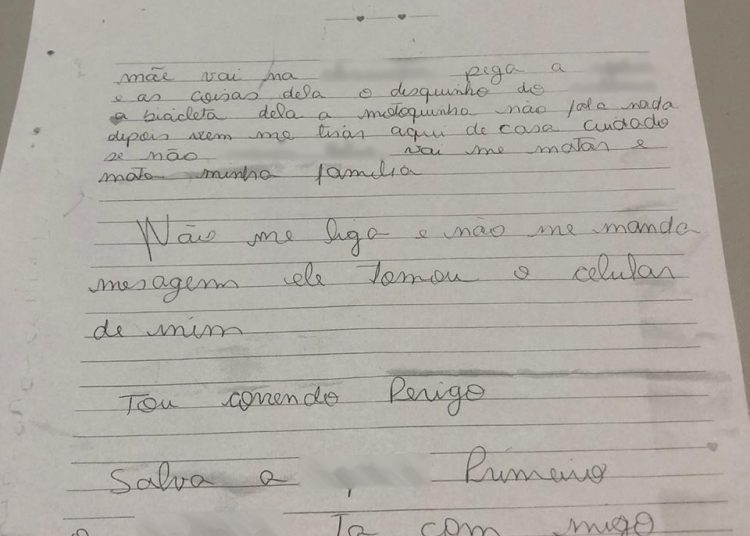 mãe vai na pega a
e as coisas dela o disquinho do
a bicicleta dela a motoquinha não fala nada
depois vem me tirar aqui de casa cuidado
se não vai me matar e
mata minha familia
Não me liga e não me manda
mesagem ele tomou o celular
de mim
Tou correndo Perigo
Salva a , Primeiro
Ta com migo